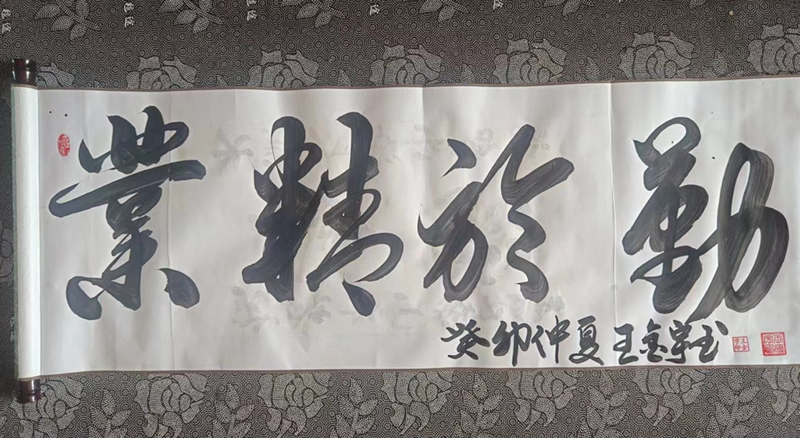 業精於勤
癸卯仲夏王金宇书